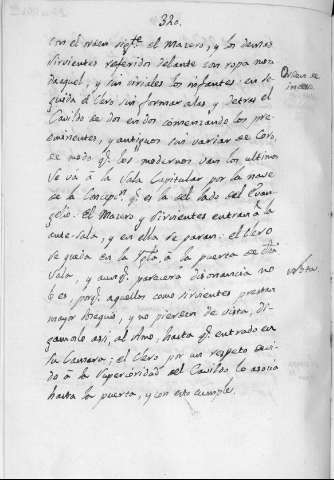 320.
con el orden sigte. el Macero, y los demas
sirvientes referidos delante con ropa non
Paquel; y sin ciriales los infantes: en se-
guida el Clero sin formar alas, y detras el
Cavildo de dos en dos comenzando los pre-
eminentes, y antiguos sin variar de Coro,
de modo qe. los modernos van los ultimos
Se va à la Sala Capitular por la nave
de la Concepn. qe. es la del lado del Evan-
gelio: El Macero y Sirvientes entran à la
ante-sala, y en ella se paran: el Clero
se queda en la Yglà. à la puerta de dha
Sala, y aunqe. parecerá disonancia no
lo es, porqe. aquellos como sirvientes prestan
mayor obsequio, y no pierden de vista, di-
gamoslo asi, al Amo, hasta qe. entrado en
su Camara; el Clero por un respeto devi-
do à la Superioridad del Cavildo lo asocia
hasta la puerta, y con esto cumple.
Orden de
Nota.